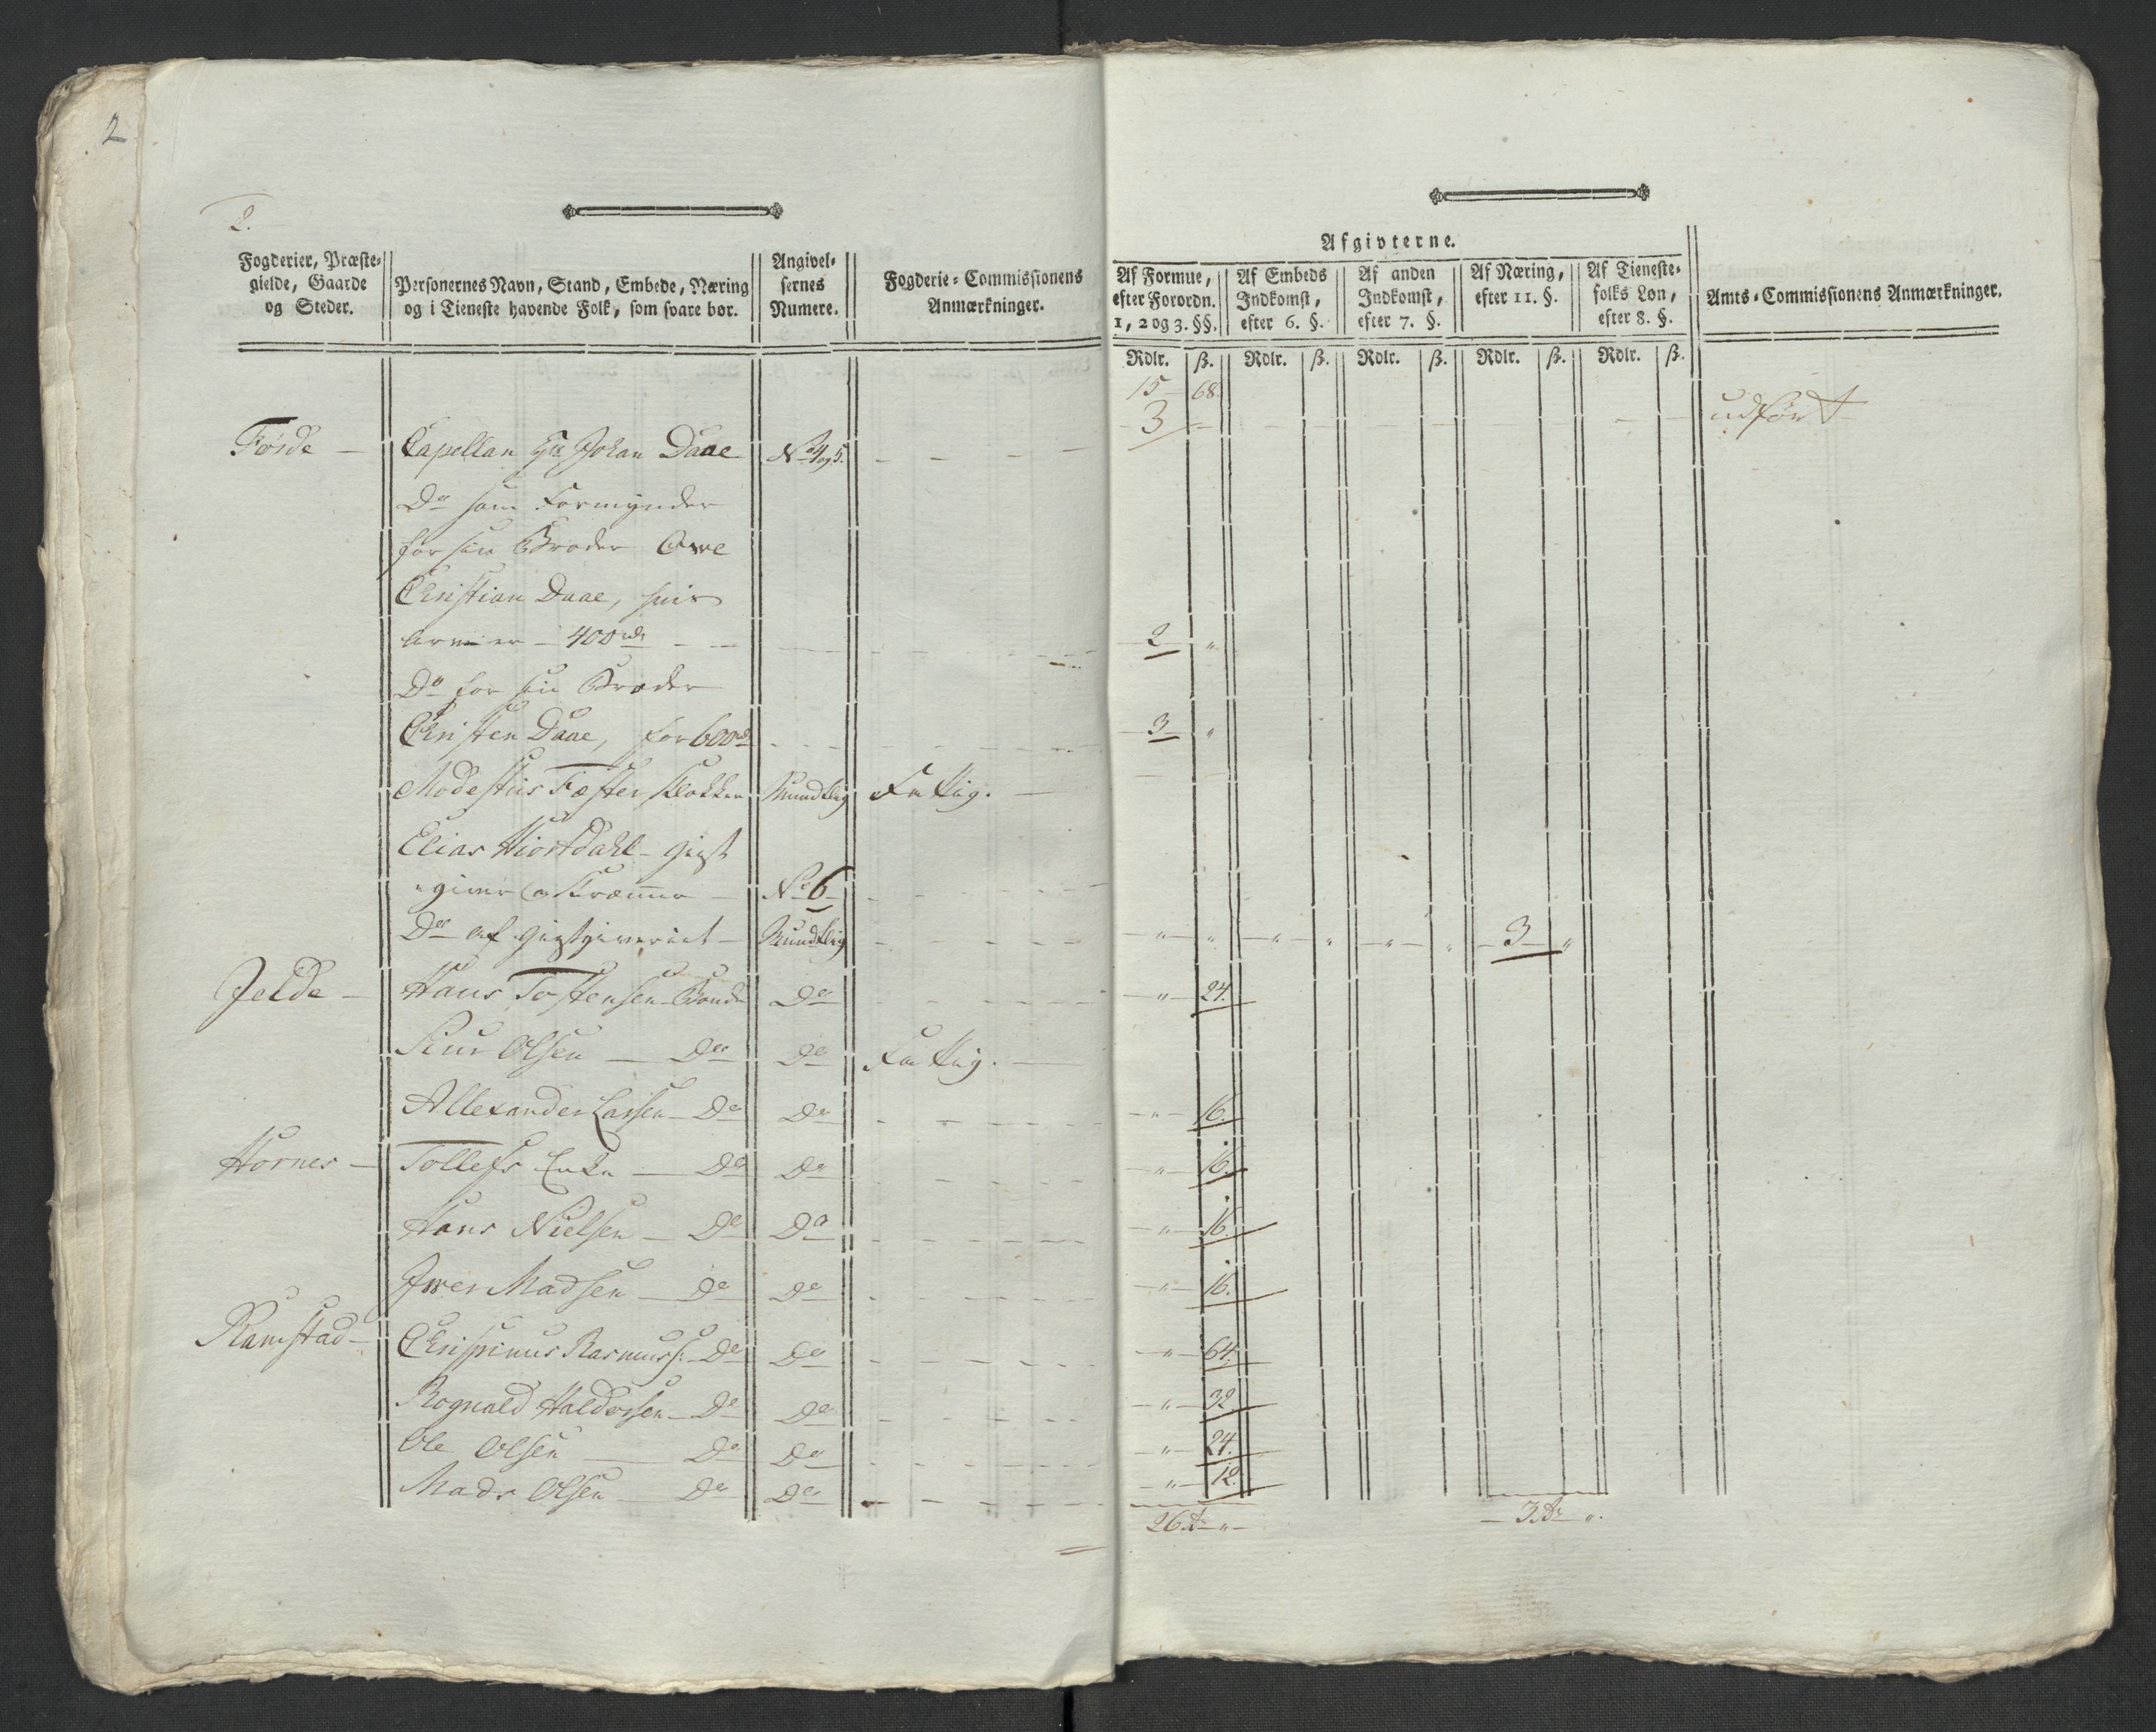 2
2.
Fogderier, Præste-
gielde, Gaarde
og Steder.
Personernes Navn, Stand, Embede, Næring
og i Tieneste havende Folk, som svare bør.
Angivel-
sernes
Numere.
Fogderie-Commissionens
Anmærkninger.
Afgivterne.
Af Formue,
efter Forordn.
1, 2 og 3. §§.
Af Embeds
Indkomst,
efter 6. §.
Af anden
Indkomst,
efter 7. §.
Af Næring,
efter 11. §.
Af Tieneste-
folks Løn,
efter 8. §.
Amts-Commissionens Anmærkninger.
Rdlr. ß. Rdlr. ß. Rdlr. ß. Rdlr. ß. Rdlr. ß.
15 68.
Førde - Capellan Hr Johan Daae No 4 og 5. - - - - 3 - udført
Do som Formynder
for sin Broder Owe
Christian Daae,
400 rd - - 2 "
Do for sin Broder
Christen Daae, for 600 rd - - - 3 "
Modestus Fæster Klokker Mundtlig Fattig. -
Elias Hiortdahl - giest
giver og Kræmmer - No 6 -
Do af giestgiveriet - Mundtlig - - - " " " " " " 3 "
Jelde - Hans Tostensen Bonde Do - - - " 24.
Siur Olsen - Do Do Fattig. -
Allexander Larsen - Do Do - - - " 16.
Hornes - Tollefs Enke - Do Do - - - " 16.
Hans Nielsen - Do Do - - - " 16.
Iwer Madsen - Do Do - - - " 16.
Ramstad - Chrispinus Rasmuss: Do Do - - - " 64.
Rognald Haldorsen - Do Do - - - " 32
Ole Olsen - Do Do - - - " 24.
Mads Olsen - Do Do - - - " 12.
26 rd " - - 3 rd ".